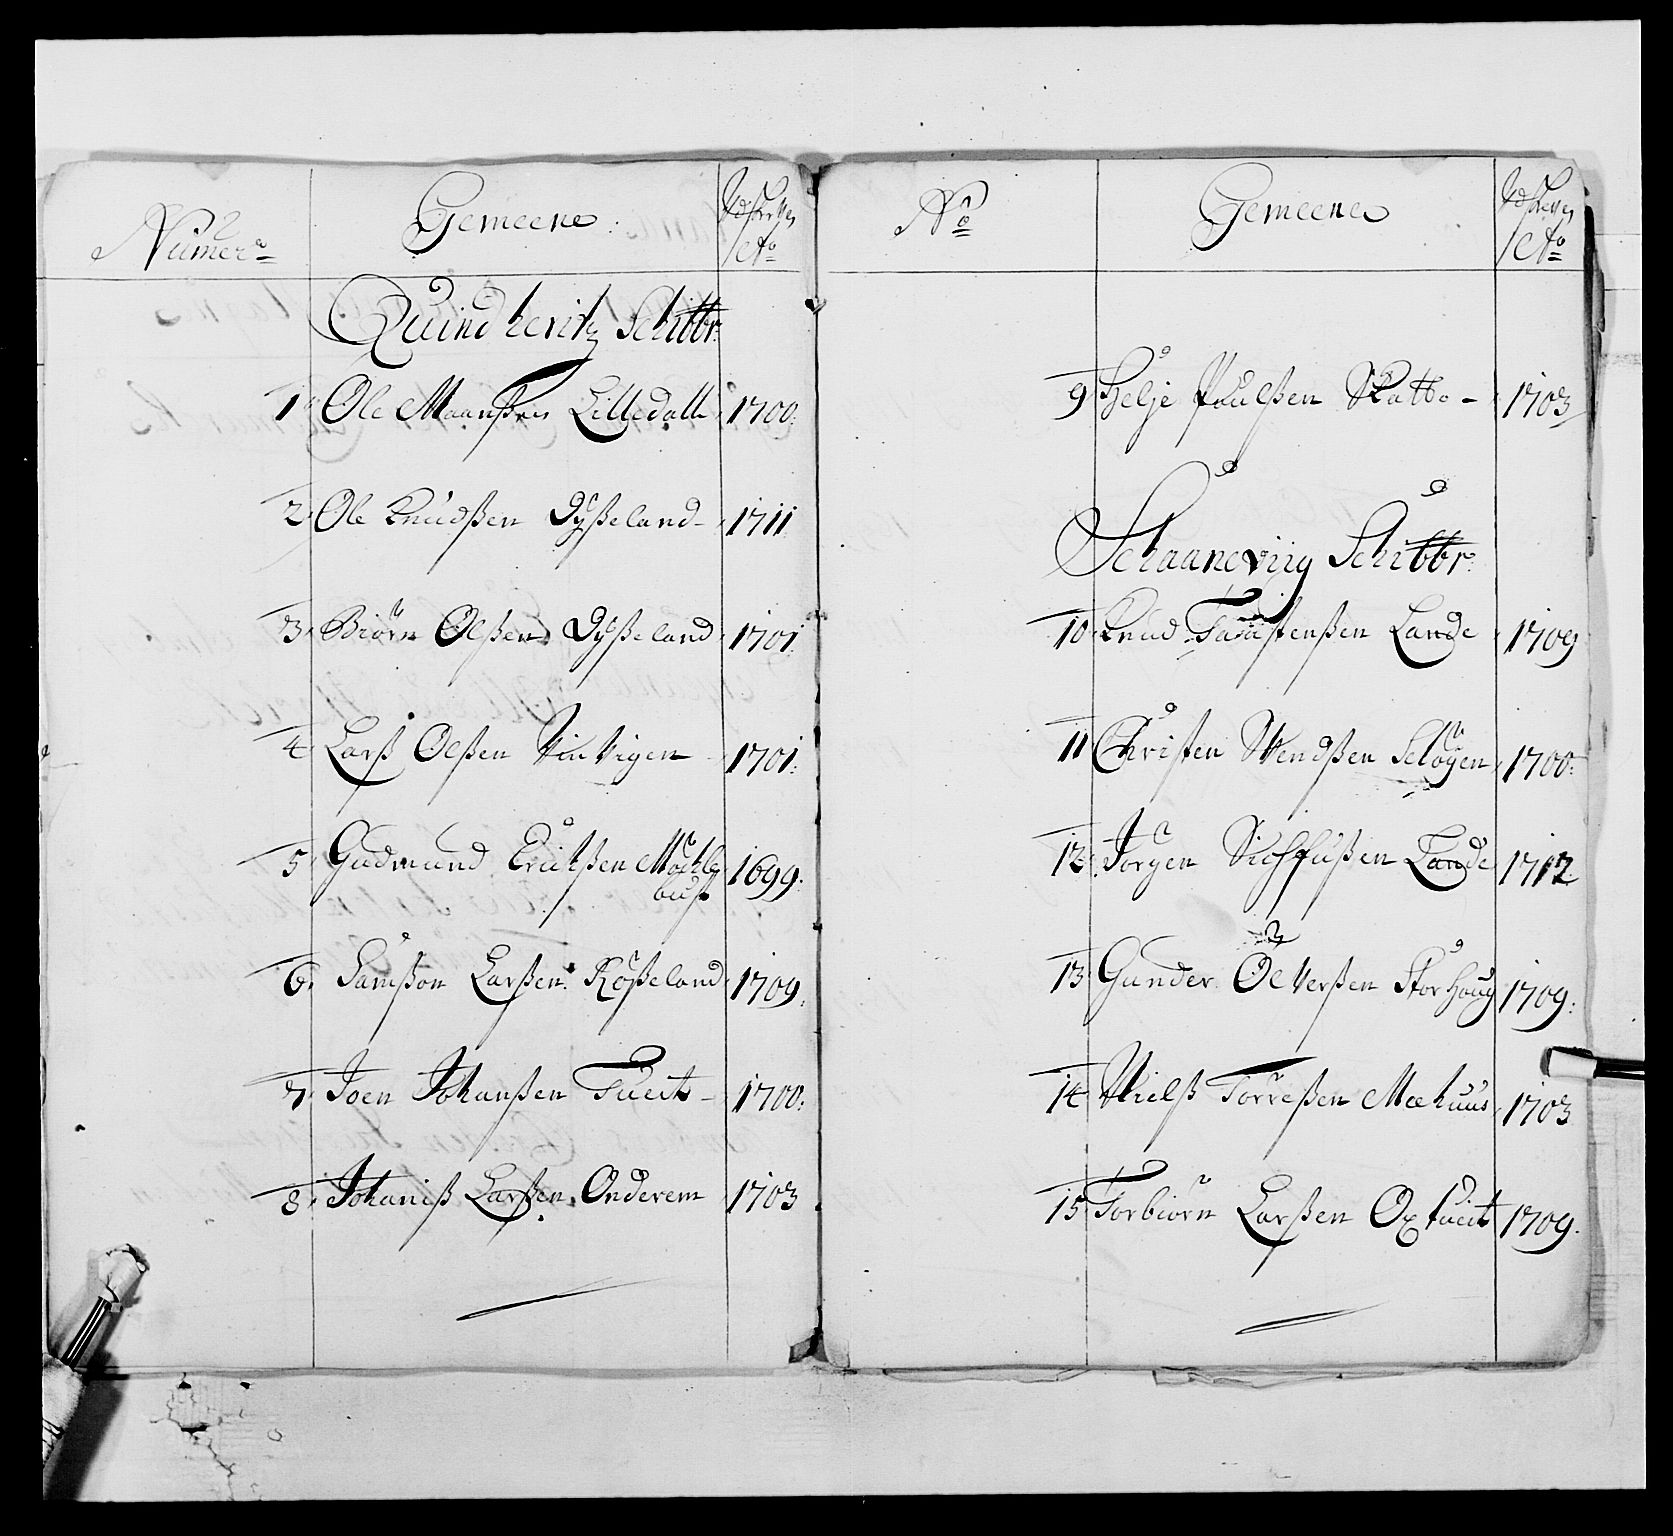 Numero
Gemeene
Ao
Quindheritz Schibbr:
1 Ole Maanßen Lilledall 1700
2 Ole Knudßen Dyßeland 1711
3 Biörn Olßen Dyßeland 1701
4 Larß Olßen 1701
5 Gudmund Erichßen Möchle 1699
bust
6 Samßon Larßen Rößeland 1709
7 Joen Johanßen Tueit 1700
8 Johaniß Larßen Onderem 1703
No
Gemeene
Ao
9 Helje Poulßen Skatte 1703
Schaaneviig Schibbr:
10 Knud Lande 1709
11 Christen Swendßen 1700
12 Jörgen Lande 1712
13 Gunder Ölverßen Storhoug 1709
14 Nielß Torreßen Mæhuus 1703
15 Torbiörn Larßen Oxtueit 1709